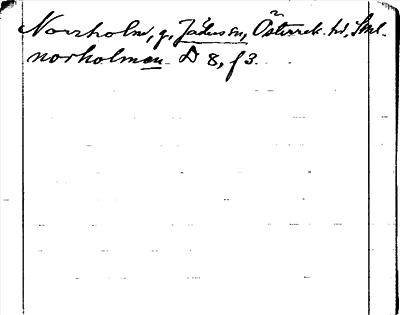 Norrholm, g, Jäders sn, Österrek. hd, Söml.
norholmen D 8, f 3.